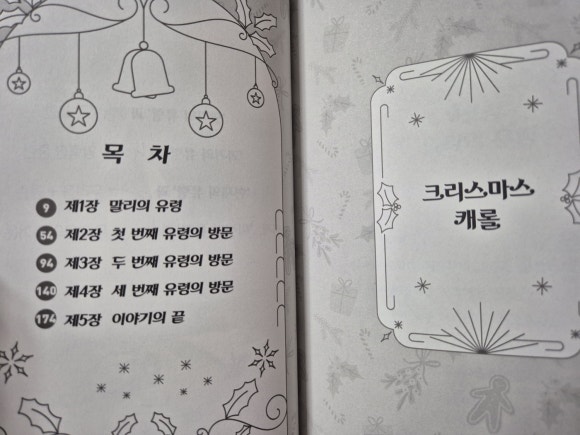 목 차
9 제1장 말리의 유령
54 제2장 첫 번째 유령의 방문
94 제3장 두 번째 유령의 방문
140 제4장 세 번째 유령의 방문
174 제5장 이야기의 끝
크리스마스
캐롤